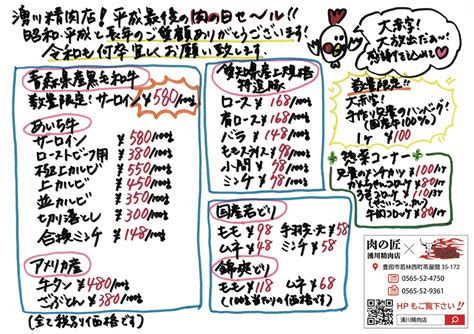 湧川精肉店！平成最後の肉の日セール!!
昭和・平成と長年のご愛顧ありがとうございます！
令和も何卒宜しくお願い致します。
大赤字！
大放出だぁ〜！
感謝を込めて
青森県産黒毛和牛
数量限定！サーロイン ¥580/100g
あいち牛
サーロイン ¥580/100g
ローストビーフ用 ¥380/100g
極上カルビ ¥550/100g
上カルビ ¥450/100g
並カルビ ¥350/100g
切り落とし ¥300/100g
合挽ミンチ ¥148/100g
アメリカ産
牛タン ¥480/100g
ざぶとん ¥380/100g
(全て税別価格です)
愛知県産上規格
特選豚
ロース ¥168/100g
肩ロース ¥168/100g
バラ ¥148/100g
ももスライス ¥98/100g
小間 ¥58/100g
ミンチ ¥58/100g
国産若どり
もも ¥98 手羽元・先 ¥58
ムネ ¥48
錦爽どり
もも ¥118 ムネ ¥68
(100g当たりの価格です)
数量限定!!
大赤字！
手作り兄貴のハンバーグ！
(国産牛100%)
1ヶ ¥100
惣菜コーナー
兄貴のメンチカツ ¥100/1ヶ
¥80/1ヶ
¥110/1ヶ
牛肉コロッケ ¥80/1ヶ
肉の匠
湧川精肉店
×
豊田市若林西町茶屋間 35-172
0565-52-4750
0565-52-9361
HP もご覧下さい!!
湧川精肉店